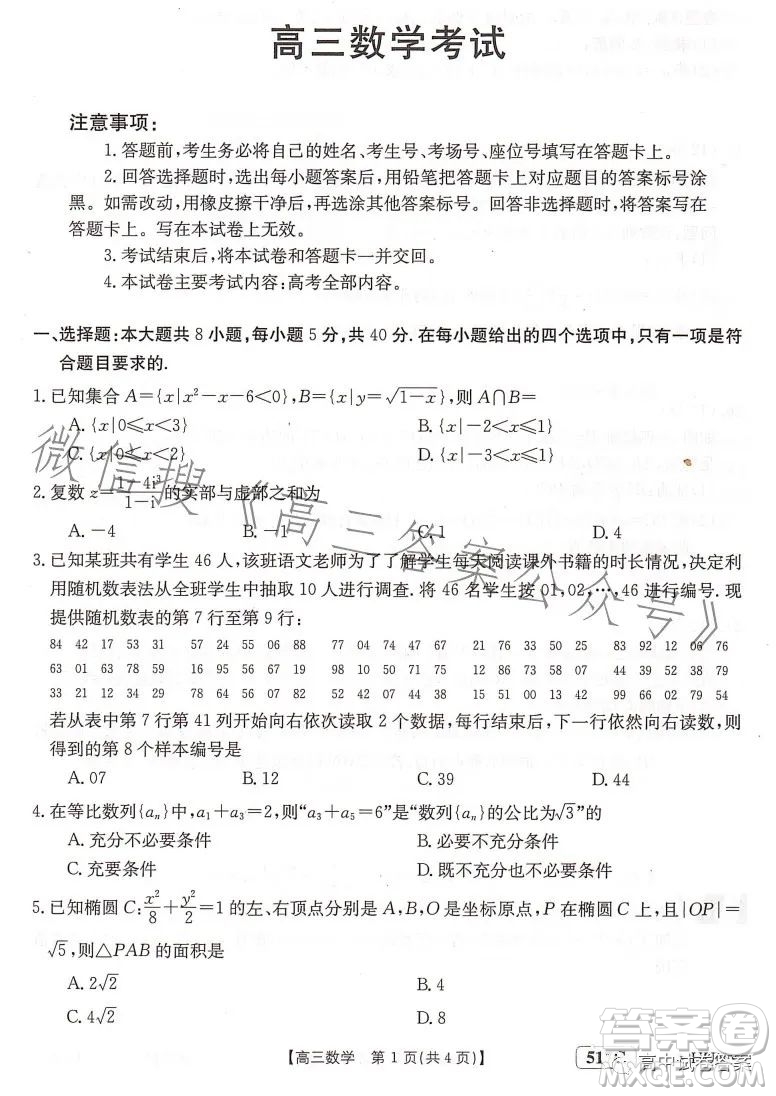 高三数学考试
注意事项：
1.答题前，考生务必将自己的姓名、考生号、考场号、座位号填写在答题卡上。
2.回答选择题时，选出每小题答案后，用铅笔把答题卡上对应题目的答案标号涂
黑。如需改动，用橡皮擦干净后，再选涂其他答案标号。回答非选择题时，将答案写在
答题卡上。写在本试卷上无效。
3.考试结束后，将本试卷和答题卡一并交回。
4.本试卷主要考试内容：高考全部内容。
一、选择题：本大题共8小题，每小题5分，共40分.在每小题给出的四个选项中，只有一项是符
合题目要求的.
1.已知集合A={x|x²-x-6<0},B={x|y=√(1-x)},则A∩B=
A.{x|0≤x<3} B.{x|-2<x≤1}
C.{x|0≤x<2} D.{x|-3<x≤1}
2.复数z=(1-4i³)/(1-i)的实部与虚部之和为
A.-4 B.-1 C.1 D.4
3.已知某班共有学生46人，该班语文老师为了了解学生每天阅读课外书籍的时长情况，决定利
用随机数表法从全班学生中抽取10人进行调查.将46名学生按01,02,…,46进行编号.现
提供随机数表的第7行至第9行：
84 42 17 53 31 57 24 55 06 88 77 04 74 47 67 21 76 33 50 25 83 92 12 06 76
63 01 63 78 59 16 95 55 67 19 98 10 50 71 75 12 86 73 58 07 44 39 52 38 79
33 21 12 34 29 78 64 56 07 82 52 42 07 44 38 15 51 00 13 42 99 66 02 79 54
若从表中第7行第41列开始向右依次读取2个数据，每行结束后，下一行依然向右读数，则
得到的第8个样本编号是
A.07 B.12 C.39 D.44
4.在等比数列{aₙ}中，a₁+a₃=2，则“a₃+a₅=6”是“数列{aₙ}的公比为√3”的
A.充分不必要条件 B.必要不充分条件
C.充要条件 D.既不充分也不必要条件
5.已知椭圆C:x²/8+y²/2=1的左、右顶点分别是A,B,O是坐标原点，P在椭圆C上，且|OP|=
√5，则△PAB的面积是
A.2√2 B.4
C.4√2 D.8
【高三数学 第1页(共4页)】
微信搜《高三答案公众号》
高中试卷答案